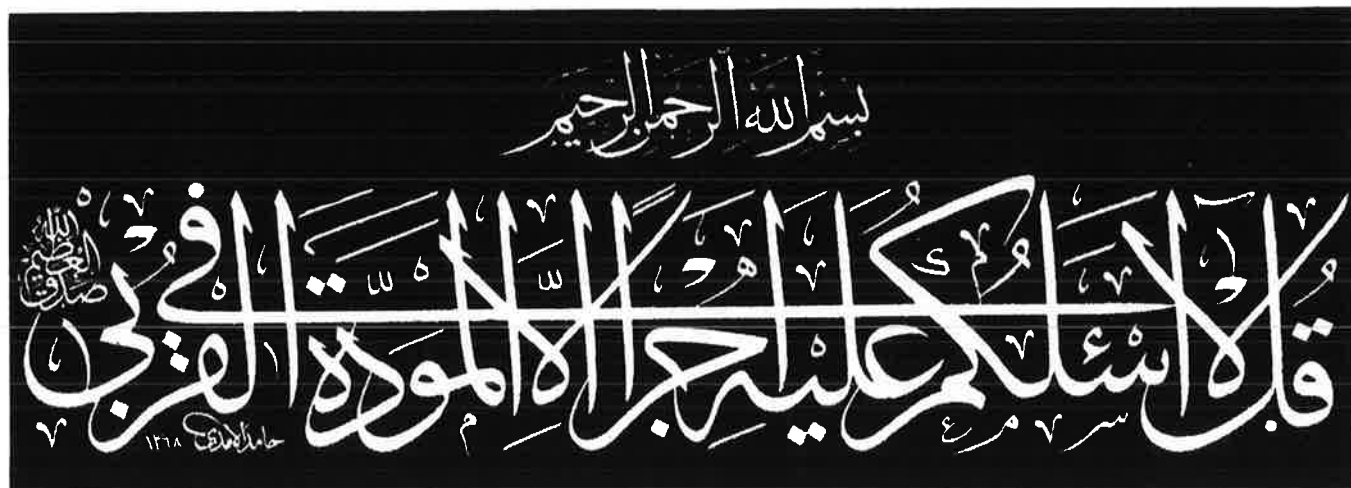 بسم الله الرحمن الرحيم
قُل لا اسئلكم عليه اجرًا الا المودة في القربى
صدق الله العظيم
حامد الآمدي ١٣٦٨